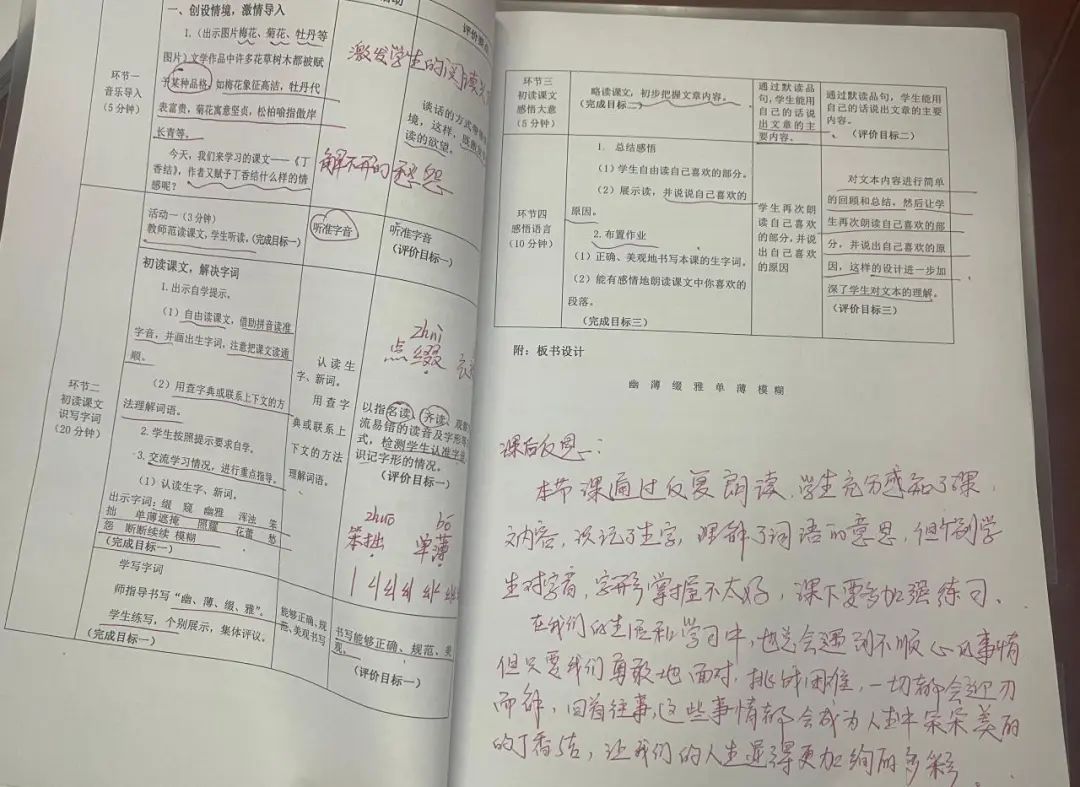 一、创设情境，激情导入
1.（出示图片梅花、菊花、牡丹等
图片）文学作品中许多花草树木都被赋
予某种品格，如梅花象征高洁，牡丹代
表富贵，菊花寓意坚贞，松柏喻指傲岸
长青等。
今天，我们来学习的课文——《丁
香结》，作者又赋予丁香结什么样的情
感呢？
环节一
音乐导入
（5 分钟）
激发学生的阅读
解不开的愁怨
评价
谈话的方式
境，这样，既
读的欲望。
活动一（3 分钟）
教师范读课文，学生听读。（完成目标一）
听准字音
听准字音
（评价目标一）
初读课文，解决字词
1.出示自学提示。
（1）自由读课文，借助拼音读准
字音，并画出生字词，注意把课文读通
顺。
（2）用查字典或联系上下文的方
法理解词语。
2.学生按照提示要求自学。
3.交流学习情况，进行重点指导。
（1）认读生字、新词。
出示字词：缀 窥 幽雅 浑浊 笨
拙 单薄遮掩 照耀 花蕾 愁
怨 断断续续 模糊
（完成目标一）
环节二
初读课文
识写字词
（20 分钟）
认读生
字、新词。
用查字
典或联系上
下文的方法
理解词语。
zhuì
点缀
以指名读、齐读、观察
流易错的读音及字形等
式，检测学生认准字音
识记字形的情况。
（评价目标一）
zhuō bó
笨拙 单薄
学写字词
师指导书写“幽、薄、缀、雅”。
学生练写，个别展示，集体评议。
（完成目标一）
能够正确、规
范、美观书写
书写能够正确、规范、美
观。
（评价目标一）
环节三
初读课文
感悟大意
（5 分钟）
略读课文，初步把握文章内容。
（完成目标二）
通过默读品
句，学生能用
自己的话说
出文章的主
要内容。
通过默读品句，学生能用
自己的话说出文章的主要
内容。
（评价目标二）
环节四
感悟语言
（10 分钟）
1. 总结感悟
（1）学生自由读自己喜欢的部分。
（2）展示读，并说说自己喜欢的
原因。
2.布置作业
（1）正确、美观地书写本课的生字词。
（2）能有感情地朗读课文中你喜欢的
段落。
（完成目标三）
学生再次朗
读自己喜欢
的部分，并说
出自己喜欢
的原因
对文本内容进行简单
的回顾和总结。然后让学
生再次朗读自己喜欢的部
分，并说出自己喜欢的原
因，这样的设计进一步加
深了学生对文本的理解。
（评价目标三）
附：板书设计
幽 薄 缀 雅 单 薄 模 糊
课后反思：
本节课通过反复朗读，学生充分感知了课
文内容，识记了生字，理解了词语的意思，但个别学
生对字音，字形掌握不太好，课下要多加强练习、
在我们的生活和学习中，也总会遇到不顺心的事情
但只要我们勇敢地面对，挑战困难，一切都会迎刃
而解，回首往事，这些事情都会成为人生中朵朵美丽
的丁香结，让我们的人生显得更加绚丽多彩。